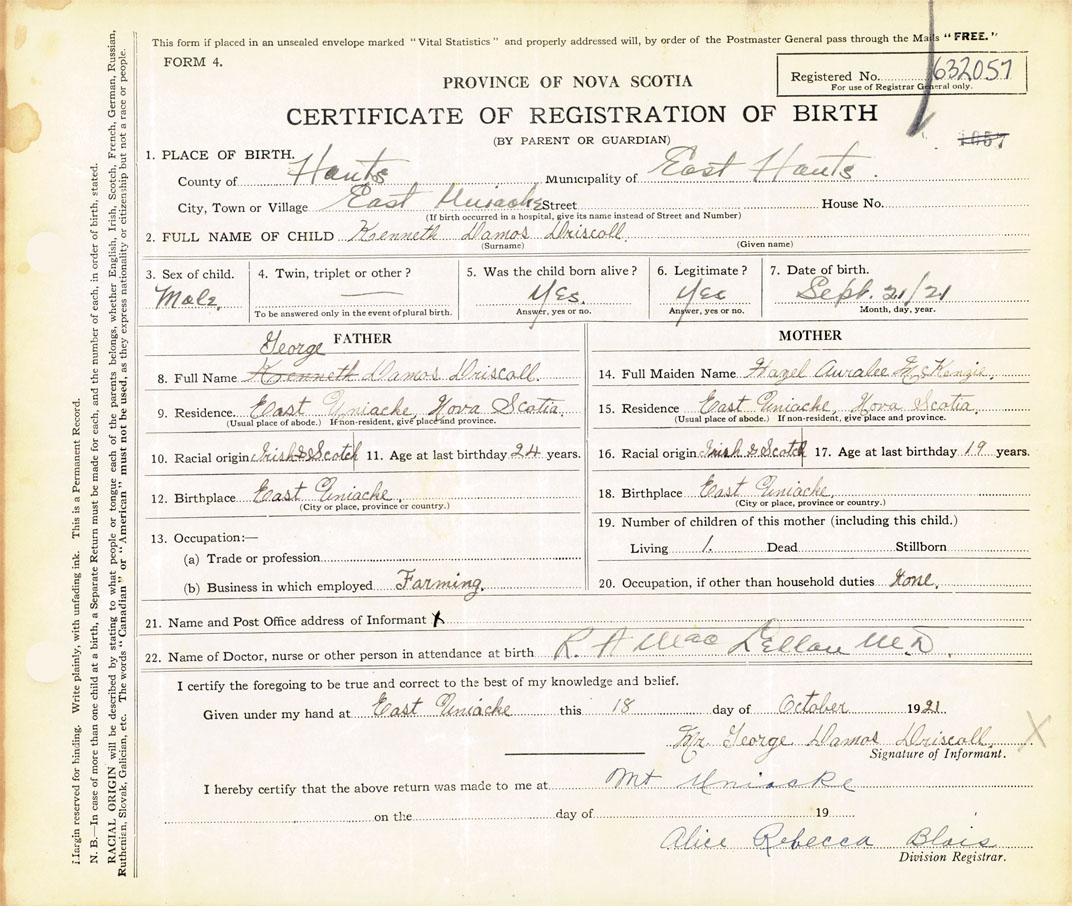 This form if placed in an unsealed envelope marked "Vital Statistics" and properly addressed will, by order of the Postmaster General pass through the Mails "FREE."
FORM 4.
Registered No. 632057
For use of Registrar General only.
PROVINCE OF NOVA SCOTIA
CERTIFICATE OF REGISTRATION OF BIRTH
(BY PARENT OR GUARDIAN)
1657
1. PLACE OF BIRTH.
County of Hants Municipality of East Hants.
City, Town or Village East Uniacke Street House No.
(If birth occurred in a hospital, give its name instead of Street and Number)
2. FULL NAME OF CHILD Kenneth Damos Driscoll
(Surname) (Given name)
3. Sex of child. 4. Twin, triplet or other? 5. Was the child born alive? 6. Legitimate? 7. Date of birth.
Male. — Yes. Yes Sept. 21/21
To be answered only in the event of plural birth. Answer, yes or no. Answer, yes or no. Month, day, year.
FATHER
George
8. Full Name Kenneth Damos Driscoll.
9. Residence. East Uniacke, Nova Scotia.
(Usual place of abode.) If non-resident, give place and province.
10. Racial origin Irish & Scotch 11. Age at last birthday 24 years.
12. Birthplace East Uniacke.
(City or place, province or country.)
13. Occupation:—
(a) Trade or profession
(b) Business in which employed Farming.
MOTHER
14. Full Maiden Name Hazel Auralee McKenzie.
15. Residence East Uniacke, Nova Scotia.
(Usual place of abode.) If non-resident, give place and province.
16. Racial origin Irish & Scotch 17. Age at last birthday 19 years.
18. Birthplace East Uniacke.
(City or place, province or country.)
19. Number of children of this mother (including this child.)
Living 1. Dead Stillborn
20. Occupation, if other than household duties None.
21. Name and Post Office address of Informant X
22. Name of Doctor, nurse or other person in attendance at birth R. A MacLellan M.D.
I certify the foregoing to be true and correct to the best of my knowledge and belief.
Given under my hand at East Uniacke this 18 day of October 1921
Mr George Damos Driscoll. X
Signature of Informant.
I hereby certify that the above return was made to me at Mt Uniacke
on the day of 19
Alice Rebecca Blois
Division Registrar.
Margin reserved for binding. Write plainly, with unfading ink. This is a Permanent Record.
N. B.—In case of more than one child at a birth, a Separate Return must be made for each, and the number of each, in order of birth, stated.
RACIAL ORIGIN will be described by stating to what people or tongue each of the parents belongs, whether English, Irish, Scotch, French, German, Russian,
Ruthenian, Slovak, Galician, etc. The words "Canadian" or "American" must not be used, as they express nationality or citizenship but not a race or people.